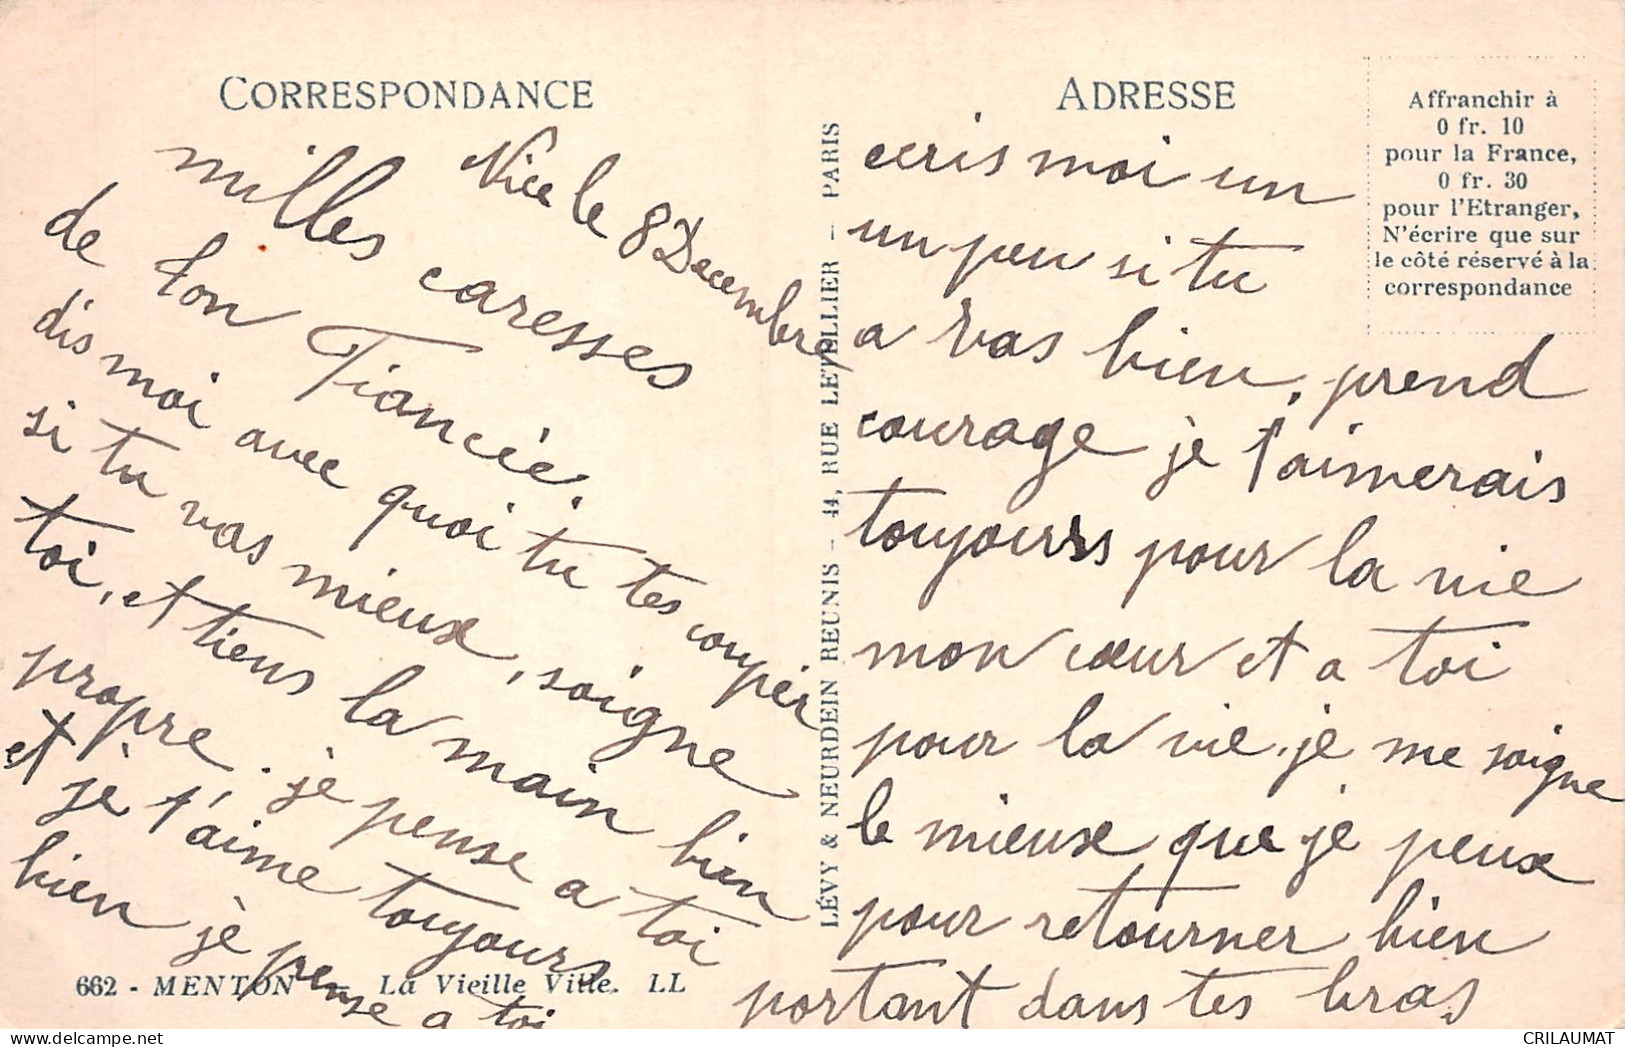 CORRESPONDANCE
Nice le 8 Decembre
milles caresses
de ton Fiancée.
dis moi avec quoi tu tes couper
si tu vas mieux, soigne
toi, et tiens la main bien
propre. je pense a toi
et je t'aime toujours
bien je pense a toi
662 - MENTON - La Vieille Ville. LL
LÉVY & NEURDEIN REUNIS - 44, RUE LETELLIER - PARIS
ADRESSE
Affranchir à
0 fr. 10
pour la France,
0 fr. 30
pour l'Etranger,
N'écrire que sur
le côté réservé à la
correspondance
ecris moi un
un peu si tu
a vas bien, prend
courage je t'aimerais
toujours pour la vie
mon cœur et a toi
pour la vie. je me soigne
le mieux que je peux
pour retourner bien
portant dans tes bras
CRILAUMAT